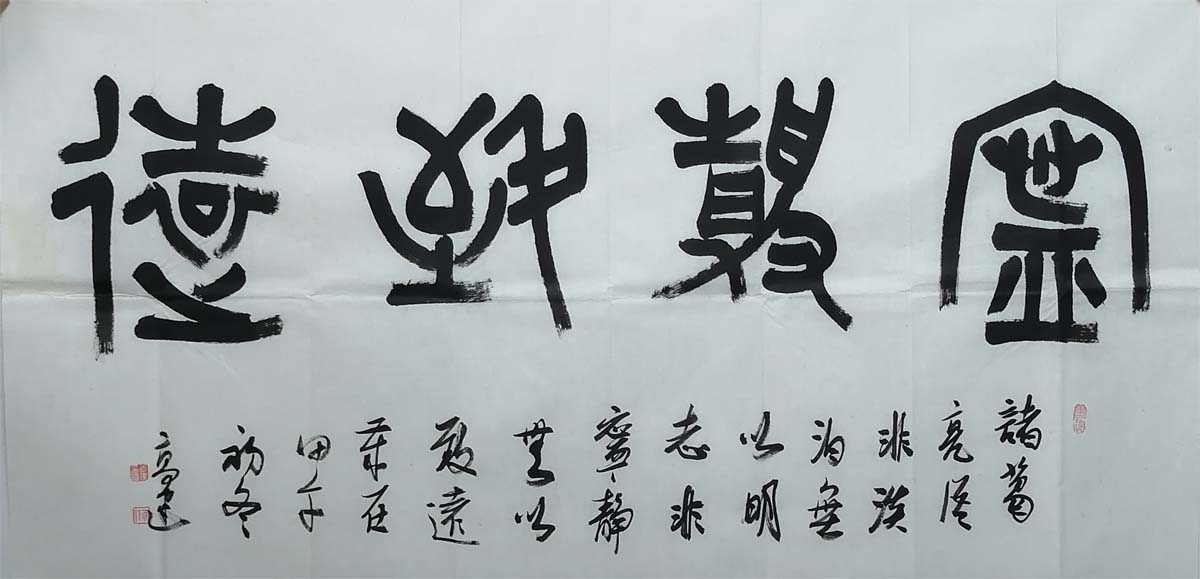 寧靜致遠
諸葛
亮
非淡
泊無
以明
志非
寧靜
無以
致遠
歲在
甲午
初冬
高